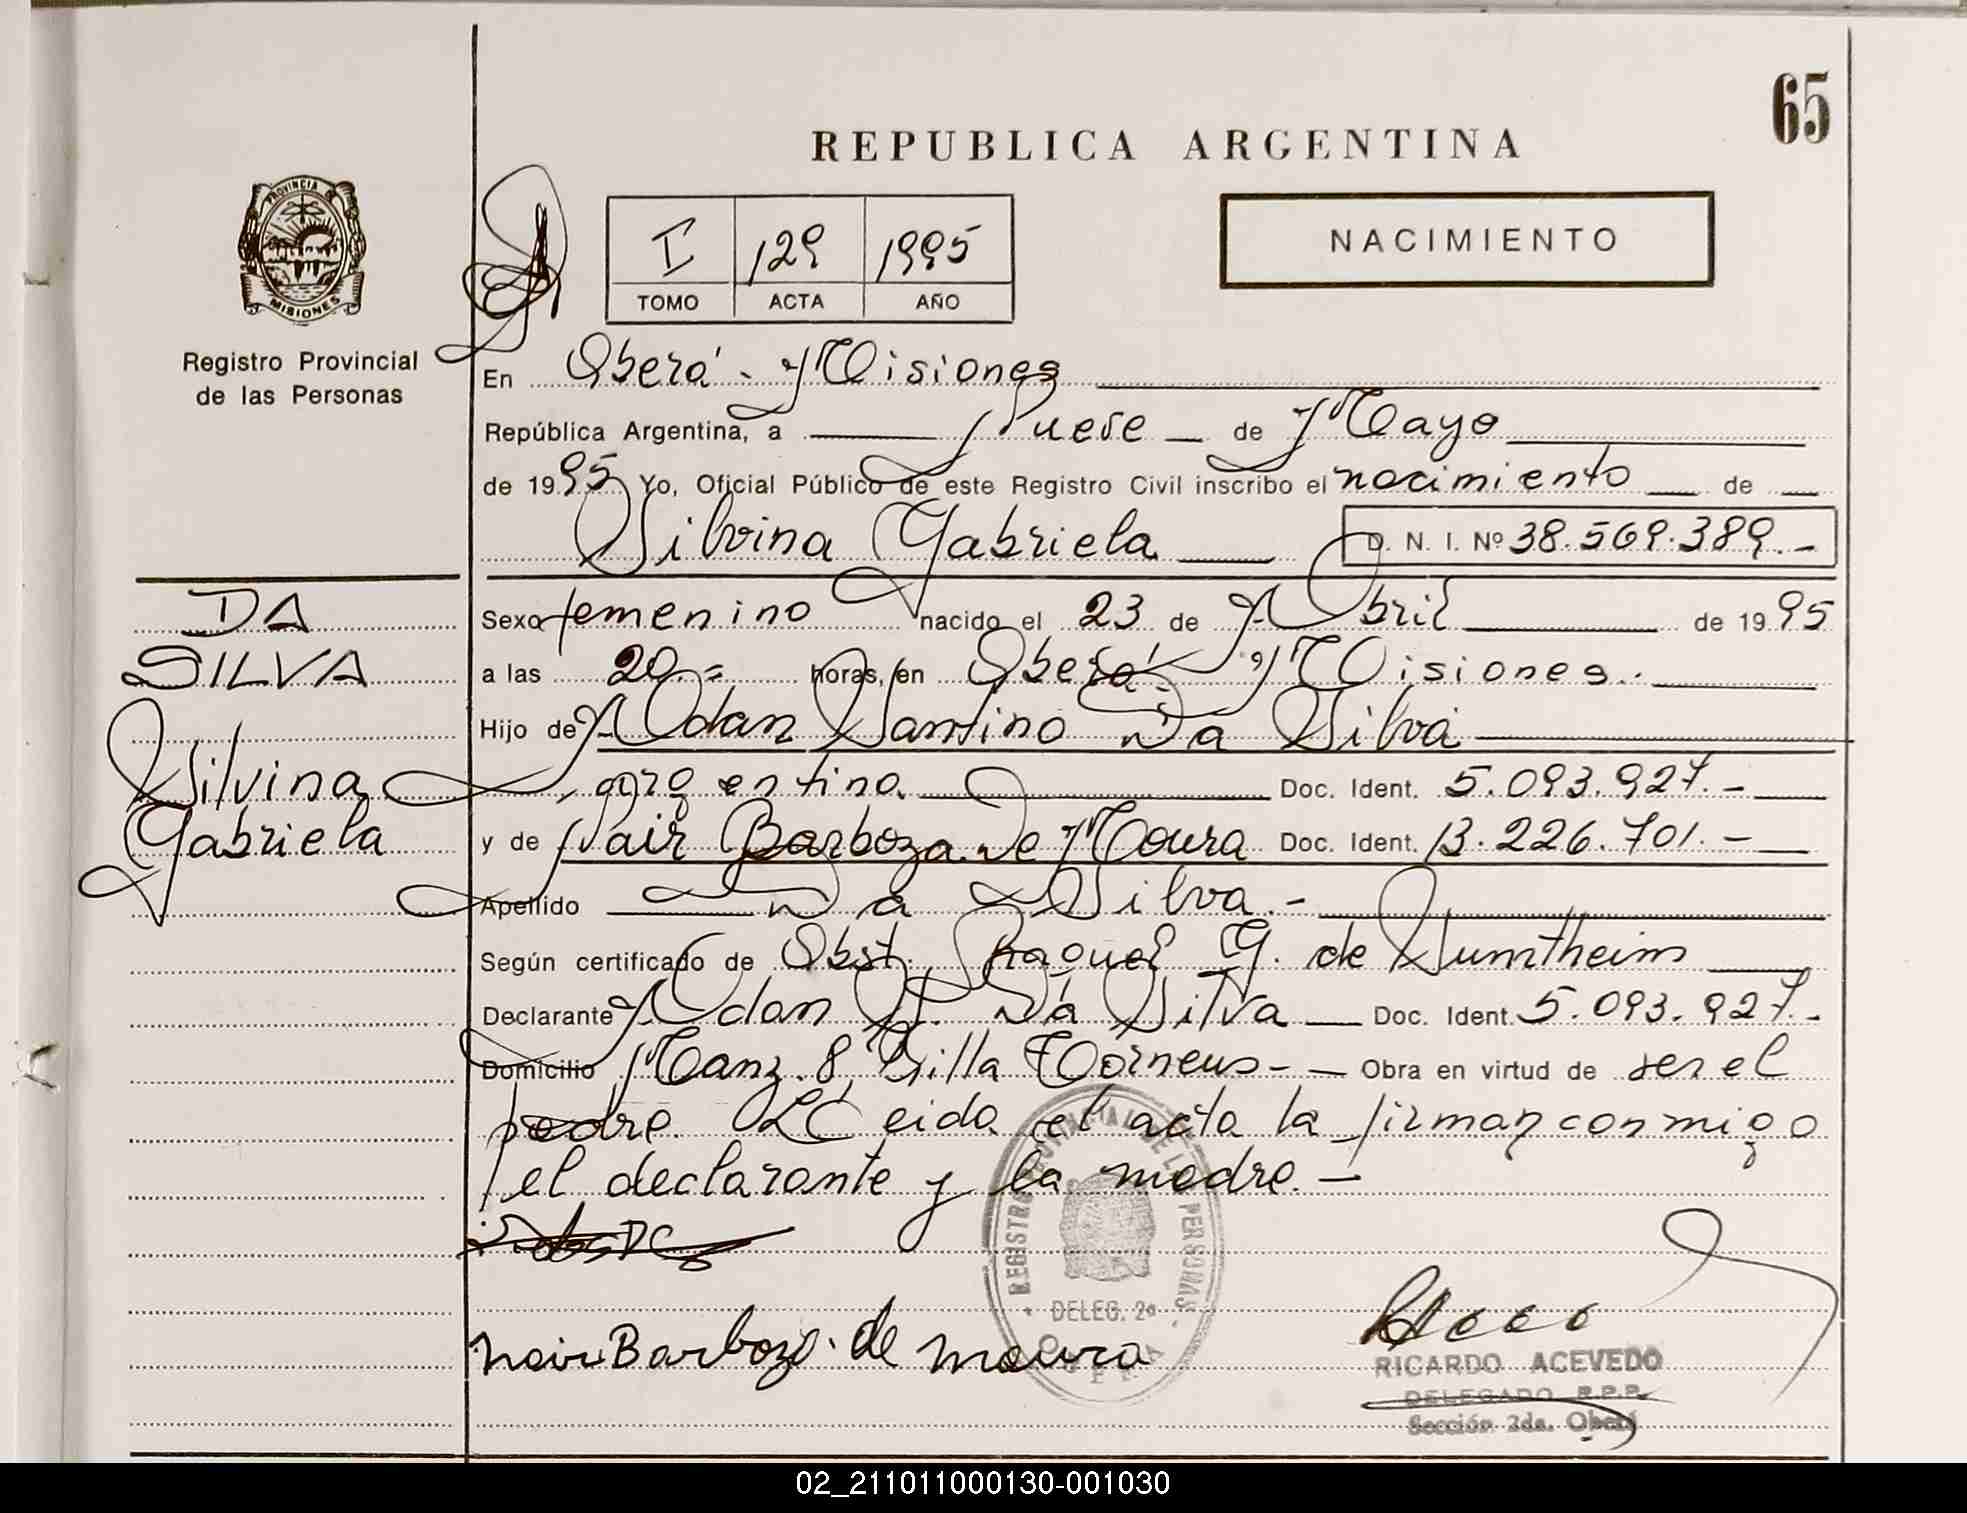 65
REPUBLICA ARGENTINA
PROVINCIA DE
MISIONES
Registro Provincial
de las Personas
I 129 1995
TOMO ACTA AÑO
NACIMIENTO
En Oberá - Misiones
República Argentina, a Nueve de Mayo
de 1995 Yo, Oficial Público de este Registro Civil inscribo el nacimiento de
Silvina Gabriela D. N. I. Nº 38.569.389.-
DA
SILVA
Silvina
Gabriela
Sexo femenino nacido el 23 de Abril de 1995
a las 20.= horas, en Oberá - Misiones.
Hijo de Adan Santino Da Silva
argentina Doc. Ident. 5.093.927.-
y de Nair Barboza De Moura Doc. Ident. 13.226.701.-
Apellido Da Silva.-
Según certificado de Obst. Raquel G. de
Declarante Adan S. Da Silva Doc. Ident. 5.093.927.-
Domicilio Manz. 8, Villa Obra en virtud de ser el
padre. LEeida el acta la firman conmigo
el declarante y la madre.-
Nair Barbozo de Moura
REGISTRO PROVINCIAL DE LAS PERSONAS
DELEG. 2ª
OBERA
RICARDO ACEVEDO
DELEGADO R.P.P.
Sección 2da. Oberá
02_211011000130-001030